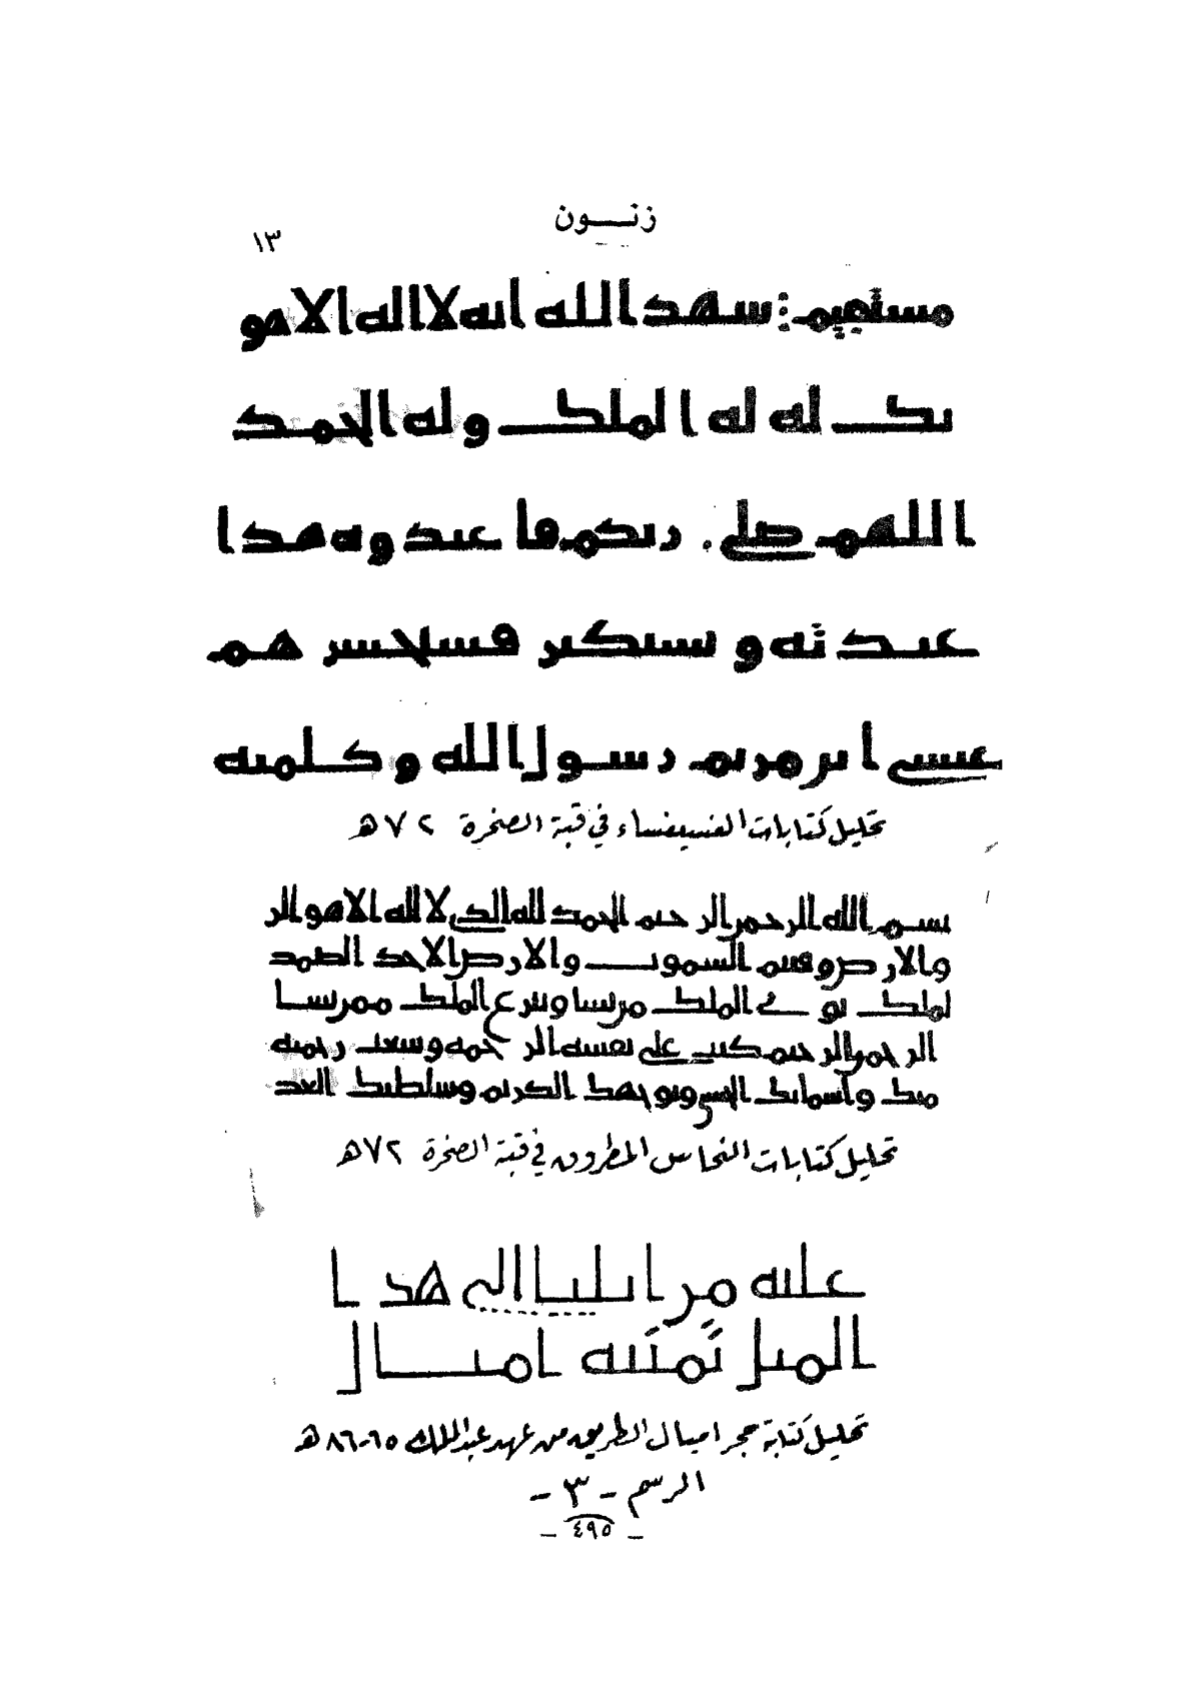 زنـــون
١٣
مستقيم : شهد الله انه لا اله الا هو
يك له له الملك وله الحمد
اللهم صلى . ربكم فا عبدوه هذا
عبدته و ستكبر فسيحشر هم
عيسى ابن مريم رسول الله وكلمته
تحليل كتابات الفسيفساء في قبة الصخرة ٧٢ هـ
بسم الله الرحمن الرحيم الحمد لله الذي لا اله الا هو الر
والارض وقيم السموت والارض الاحد الصمد
لملك توتي الملك من تشا وتنزع الملك ممن تشا
الرحمن الرحيم كتب على نفسه الرحمه وسعت رحمته
تحليل كتابات النحاس المطروق في قبة الصخرة ٧٢ هـ
عليه من ايليا الى هذا
الميل ثمنيه اميال
تحليل كتابة حجر اميال الطريق من عهد عبدالملك ٦٥-٨٦ هـ
الرسم - ٣ -
- ٤٩٥ -